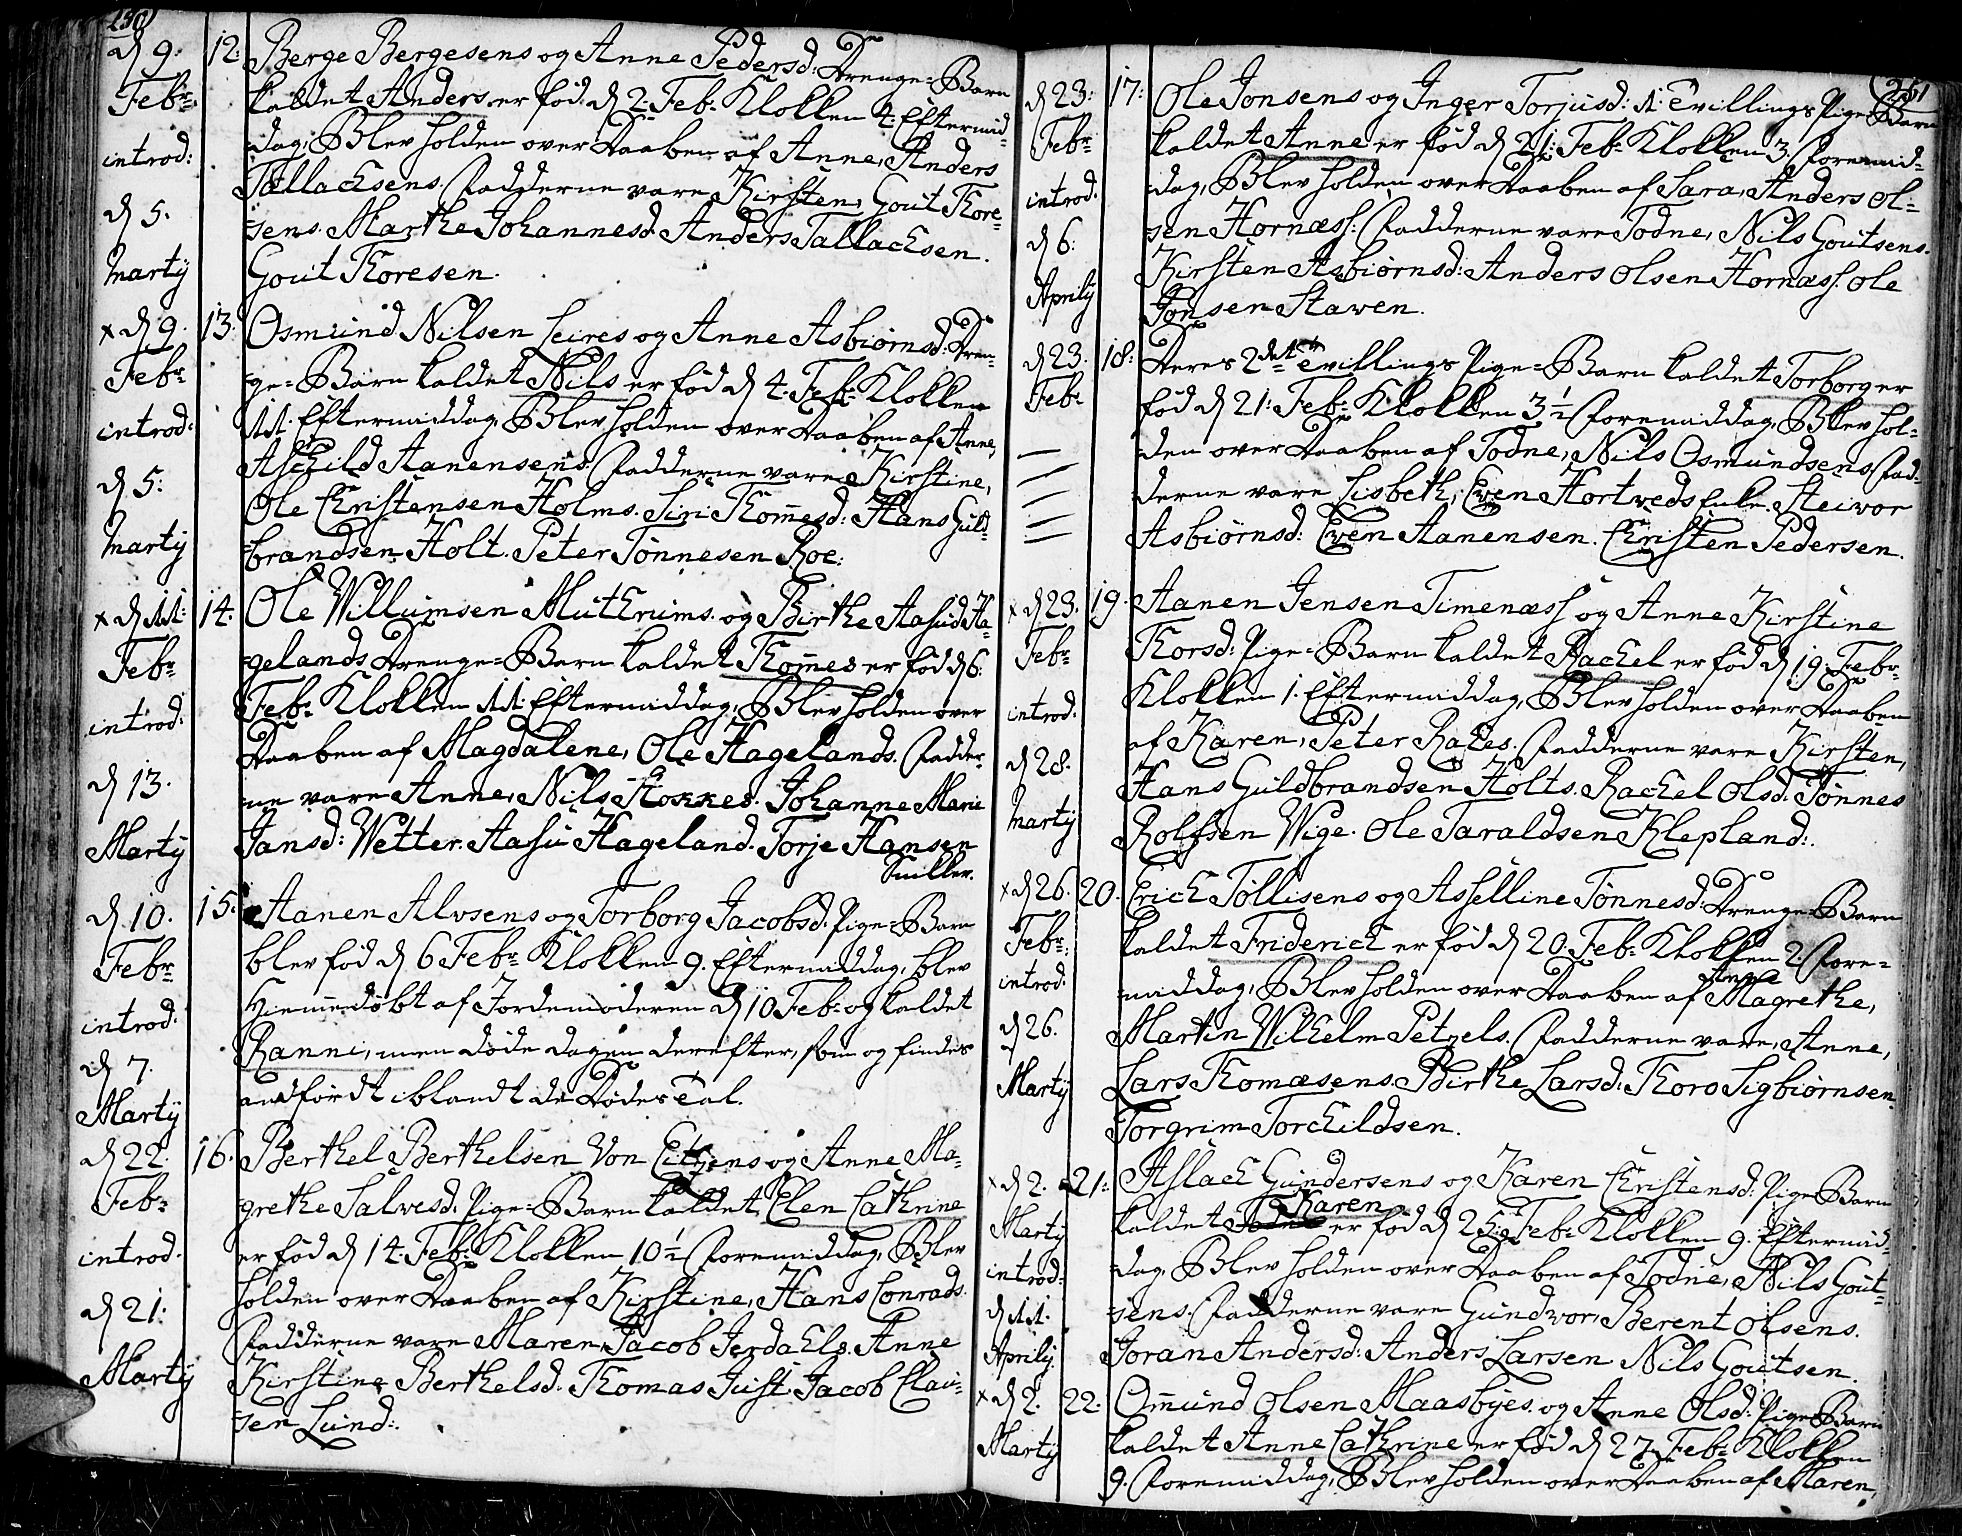 230
d 9. 12. Berge Bergesens og Anne Pedersd: Drenge-Barn
Febr: kaldet Anders er föd d 2. Feb: Klokken 4. Eftermid-
introd: dag, Blev holden over Daaben af Anne, Anders
Tallachsens. Fadderne vare Kirsten, Gout Thore-
d 5. sens. Marthe Johannesd. Anders Tallachsen.
Marty Gout Thoresen.
x d 9. 13. Osmund Nilsen Leires og Anne Asbiörnsd: Dren-
Febr ge-Barn kaldet Nils er föd d 4. Feb: Klokken
introd: 11. Eftermiddag, Blev holden over Daaben af Anne,
Aschild Aanensens. Fadderne vare Kirstine,
d 5: Ole Christensen Holms. Siri Thom̄esd: Hans Guld-
Marty brandsen Holt. Peter Tönnesen Roe:
x d 11: 14. Ole Willumsen Mutherums. og Birthe Aasud Ha-
Febr gelands Drenge-Barn kaldet Thom̄es er föd d 6.
introd: Feb: Klokken 11. Eftermiddag, Blev holden over
Daaben af Magdalene, Ole Hagelands. Fadder-
d 13. ne vare Anne, Nils Hokkes. Johanne Marie
Marty Jansd: Wetter. Aasu Hageland. Torje Hansen
Smiller.
d 10. 15. Aanen Alvsens og Torborg Jacobsd. Pige-Barn
Febr blev föd d 6 Febr Klokken 9. Eftermiddag, blev
introd: Hiem̄edöbt af Jordemoderen d 10 Feb: og kaldet
d 7. Ranni, men döde dagen derefter, som og findes
Marty andfördt iblandt de Dödes Tal.
d 22. 16. Berthel Berthelsen Von Eitzens og Anne Ma-
Febr grethe Salvesd. Pige-Barn kaldet Elen Cathrine
introd. er föd d 14. Feb: Klokken 10½ Foremiddag, Blev
holden over Daaben af Kirstine, Hans Conrads.
d 21: Fadderne vare Maren Jacob Jerdahls. Anne
Marty Kirstine Berthelsd. Thomas Just. Jacob Clau-
sen Lund:.
251
d 23: 17: Ole Jonsens og Inger Torjusd: 1: Tvillings Pige-Barn
Febr kaldet Anne er föd d 21: Feb: Klokken 3. Foremid-
introd. dag, Blev holden over Daaben af Sara, Anders Ol-
d 6: sen Hornæss: Fadderne vare Todne, Nils Goutsens.
Kirsten Asbiörnsd: Anders Olsen Hornæss. Ole
Aprily Jonsen Staven.
d 23. 18: Deres 2det Tvillings Pige-Barn kaldet Torborg er
Feb: föd d 21: Feb: Klokken 3½ Foremiddag, Blev hol-
den over Daaben af Todne, Nils Osmundsens. Fad-
derne vare Lisbeth, Even Hortveds Enke. Steivor
Asbiörnsd: Even Aanensen. Christen Pedersen.
x d 23. 19. Aanen Jensen Timenæss og Anne Kirstine
Febr Thorsd: Pige-Barn kaldet Rachel er föd d 19. Febr.
introd: Klokken 1. Eftermiddag, Blev holden over Daaben
af Karen, Peter Rahes. Fadderne vare Kirsten,
d 28. Hans Guldbrandsen Holts. Rachel Olsd. Tönnes
Marty Rolfsen Wige. Ole Taraldsen Klepland:.
x d 26. 20. Erich Töllisens og Asselline Tönnesd: Drenge-Barn
Febr: kaldet Friderich er föd d 20. Feb: Klokken 2. Fore-
introd: middag, Blev holden over Daaben af Anne Magrethe,
d 26. Martin Wilhelm Petzels. Fadderne vare, Anne,
Marty Lars Thomæsens. Birthe Larsd: Thoro Sigbiörnsen.
Torgrim Torchildsen.
x d 2. 21: Aslach Gundersens og Karen Christensd: Pige-Barn
Marty kaldet Karen er föd d 25: Feb: Klokken 9. Eftermid-
introd: dag, Blev holden over Daaben af Todne, Nils Gout-
d 11. sens. Fadderne vare Gundvor, Berent Olsens.
Aprily. Joran Andersd: Anders Larsen Nils Goutsen.
x d 2. 22. Om̄und Olsen Maasbyes. og Anne Olsd: Pige-Barn
Marty kaldet Anne Cathrine er föd d 27. Feb: Klokken
9. Foremiddag, Blev holden over Daaben af Maren,